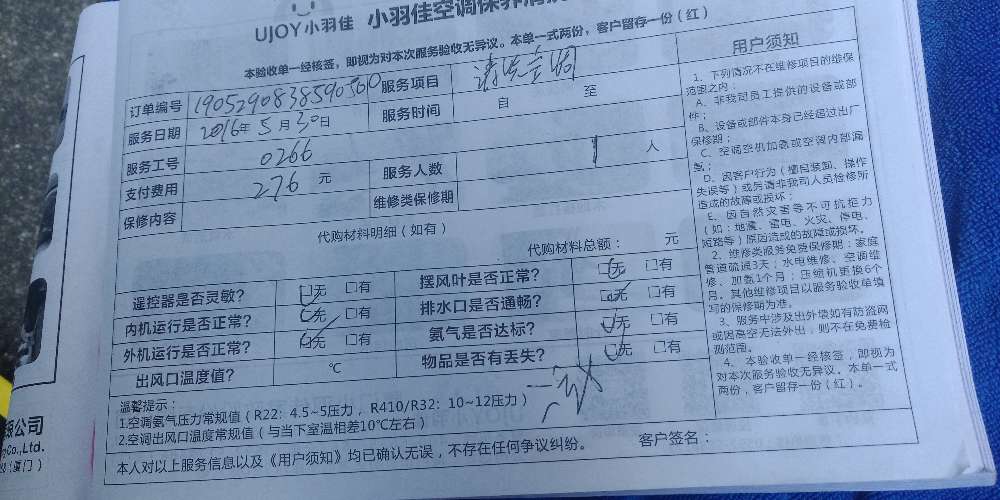 UJOY小羽佳 小羽佳空调保养清洗
本验收单一经核签，即视为对本次服务验收无异议。本单一式两份，客户留存一份（红）
订单编号 190529083859050610 服务项目 清洗空调
服务日期 2016年5月30日 服务时间 自 至
服务工号 0266
支付费用 276 元 服务人数 1 人
保修内容 维修类保修期
代购材料明细（如有）
代购材料总额： 元
遥控器是否灵敏？ 口无 口有 摆风叶是否正常？ 口无 口有
内机运行是否正常？ 口无 口有 排水口是否通畅？ 口无 口有
外机运行是否正常？ 口无 口有 氨气是否达标？ 口无 口有
出风口温度值？ ℃ 物品是否有丢失？ 口无 口有
温馨提示：
1.空调氨气压力常规值（R22：4.5~5压力，R410/R32：10~12压力）
2.空调出风口温度常规值（与当下室温相差10℃左右）
本人对以上服务信息以及《用户须知》均已确认无误，不存在任何争议纠纷。 客户签名：
用户须知
1、下列情况不在维修项目的维保
范围之内：
A、非我司员工提供的设备或部
件；
B、设备或部件本身已经超过出厂
保修期；
C、空调空机加氨或空调内部漏
氨；
D、因客户行为（擅自装卸、操作
失误等）或另请非我司人员检修所
造成的故障或损坏；
E、因自然灾害等不可抗拒力
（如：地震、雷电、火灾、停电、
短路等）原因造成的故障或损坏。
2、维修类服务免费保修期：家庭
管道疏通3天；水电维修、空调维
修、加氨1个月；压缩机更换6个
月。其他维修项目以服务验收单填
写的保修期为准。
3、服务中涉及出外墙如有防盗网
或因高空无法外出，则不在免费检
测范围。
4、本验收单一经核签，即视为
对本次服务验收无异议。本单一式
两份，客户留存一份（红）。
公司
Co.,Ltd.
厦门）